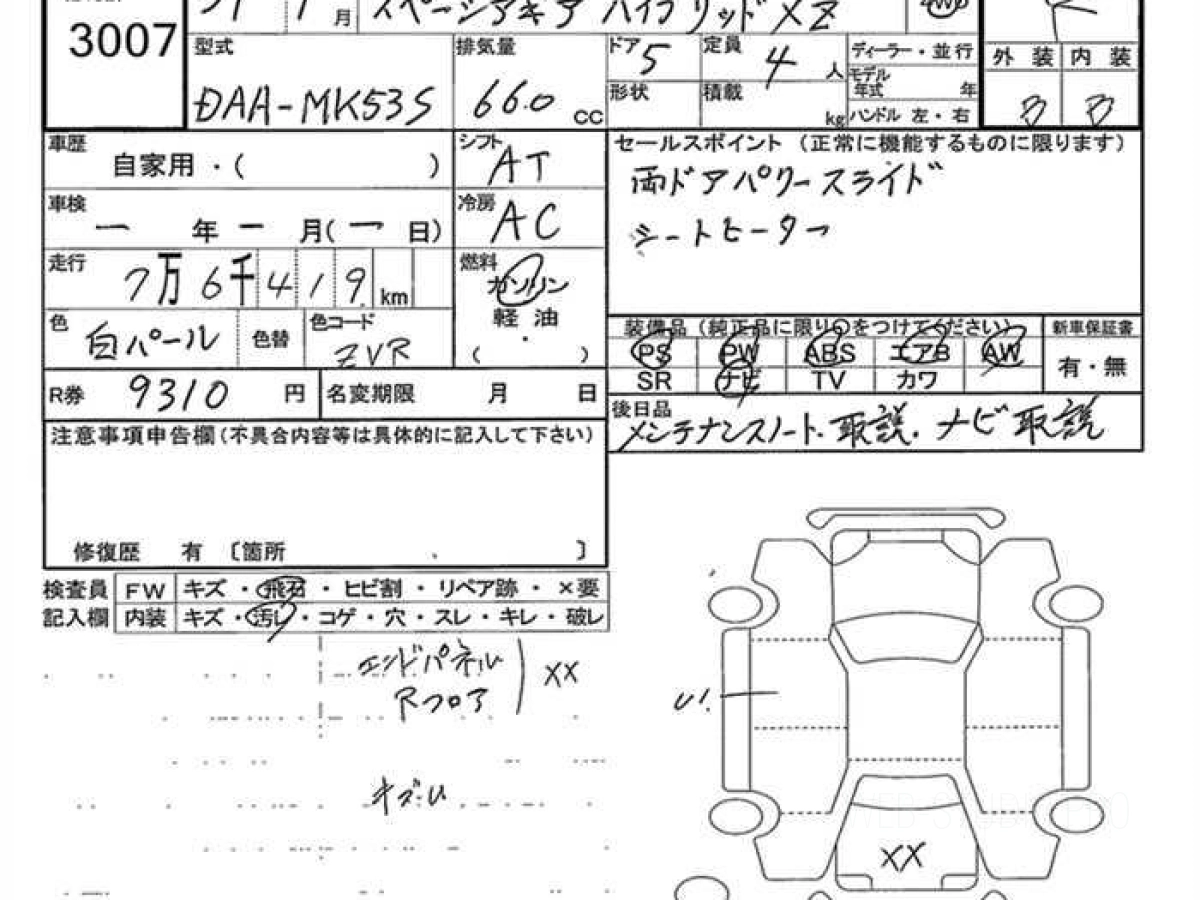 3007
31 1月 スペーシアギア ハイブリッドXZ 4WD R
型式 排気量 ドア 5 定員 4人 ディーラー・並行 外装 内装
DAA-MK53S 660 CC 形状 積載 kg モデル年式 年 B B
ハンドル 左・右
車歴 シフト セールスポイント (正常に機能するものに限ります)
自家用・( ) AT 両ドアパワースライド
車検 冷房 シートヒーター
ー年ー月(ー日) AC
走行 7万6千419km 燃料 ガソリン
軽油
( )
色 白パール 色替 色コード ZVR
装備品 (純正品に限り○をつけてください) 新車保証書
PS PW ABS エアB AW 有・無
SR ナビ TV カワ
R券 9310 円 名変期限 月 日
後日品
メンテナンスノート.取説.ナビ取説
注意事項申告欄(不具合内容等は具体的に記入して下さい)
修復歴 有 〔箇所 〕
検査員 FW キズ・飛石・ヒビ割・リペア跡・×要
記入欄 内装 キズ・汚レ・コゲ・穴・スレ・キレ・破レ
エンドパネル
Rフロア XX
キズ.U
U!
XX